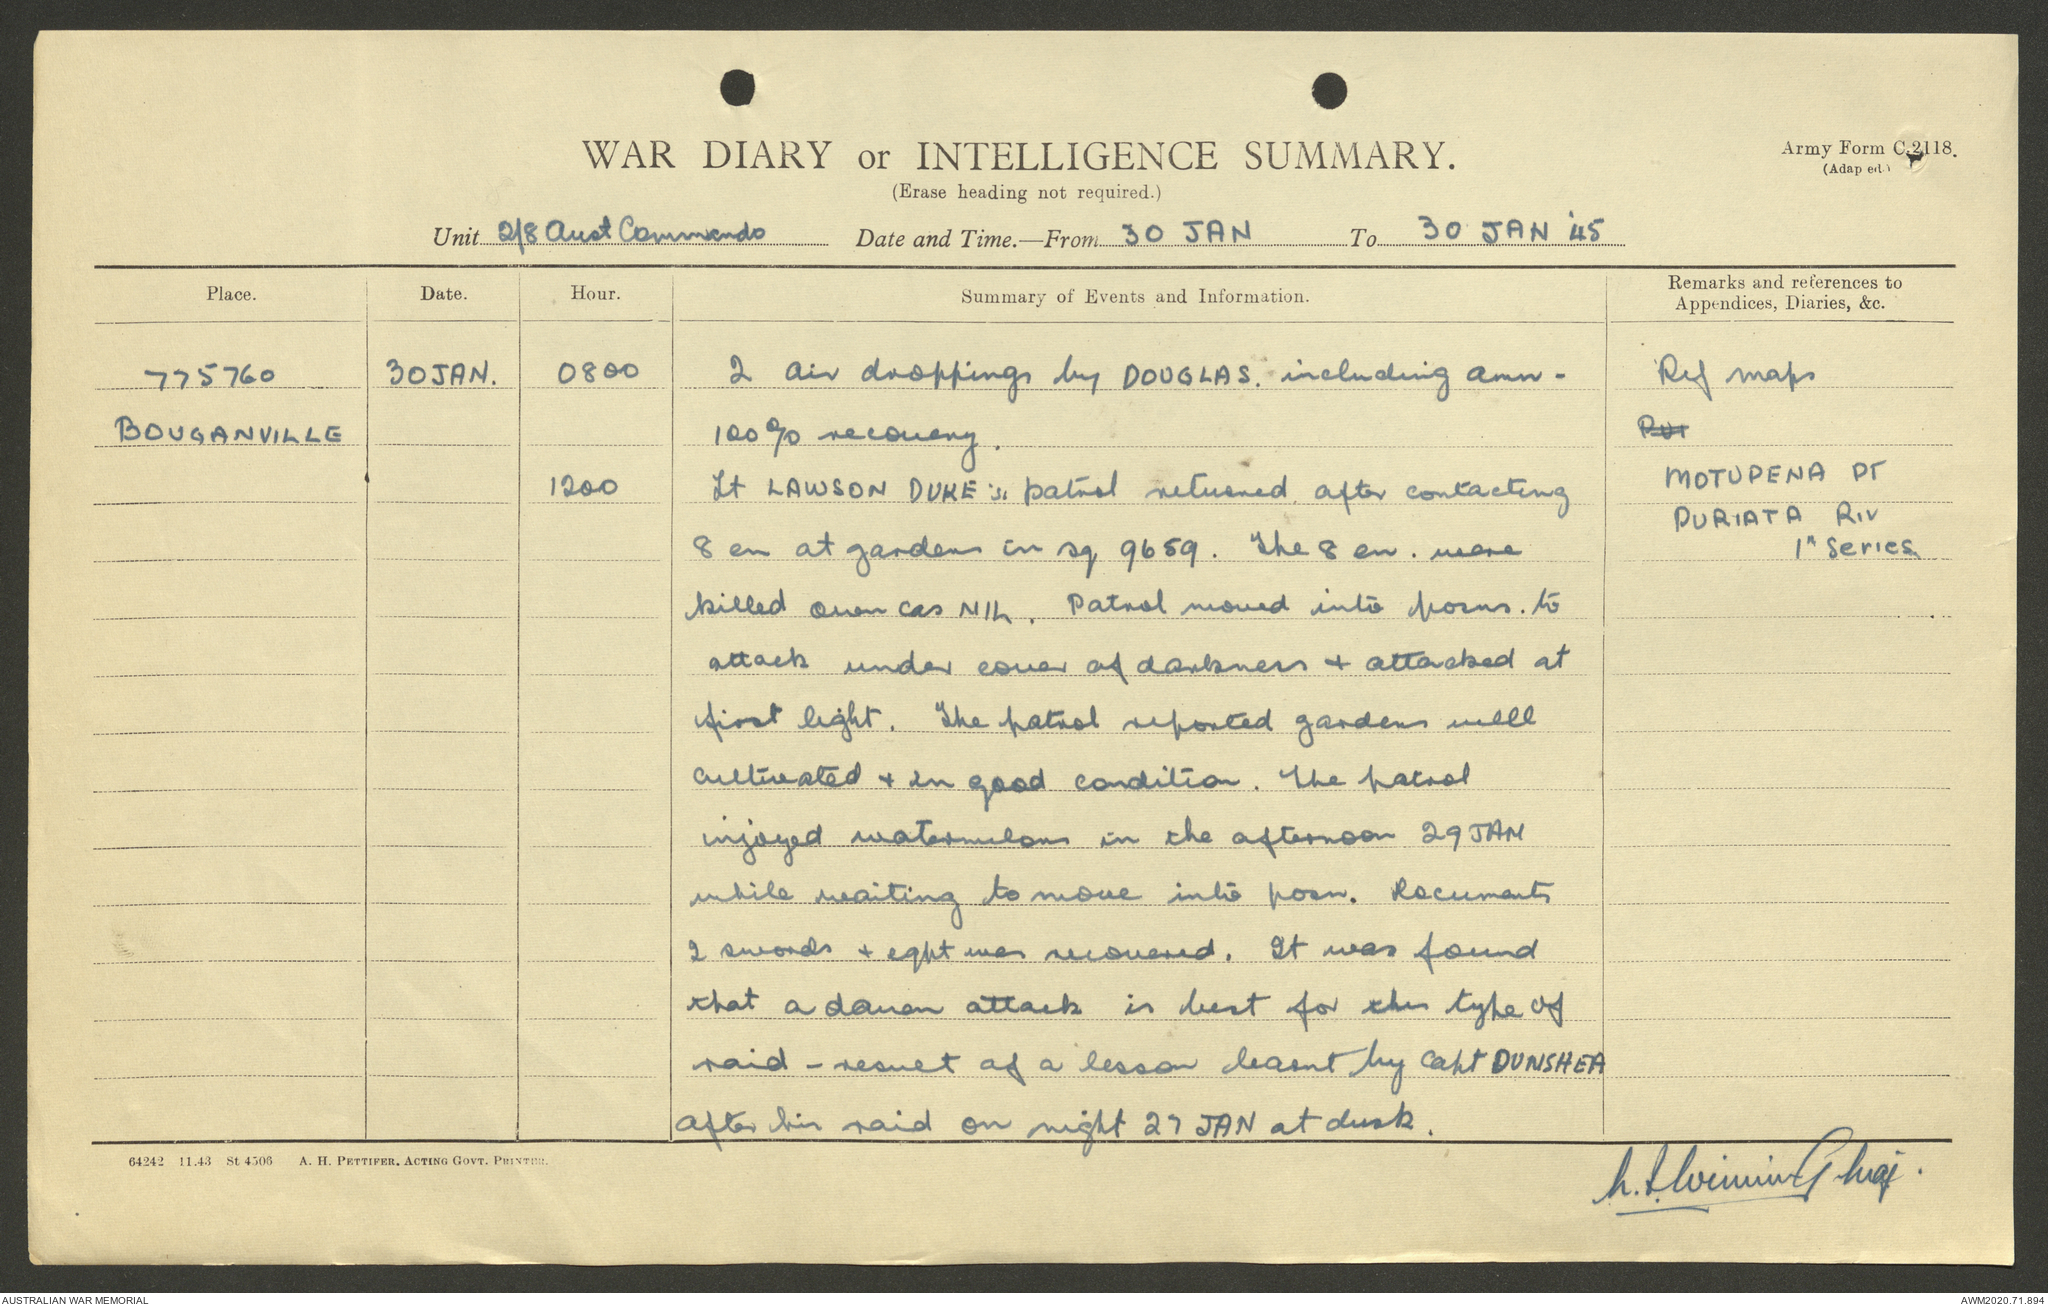 WAR DIARY or INTELLIGENCE SUMMARY.
Army Form C.2118.
(Erase heading not required.)
(Adapted.)
Unit 2/8 Aust Commando Date and Time.—From 30 JAN To 30 JAN '45
Place. Date. Hour. Summary of Events and Information. Remarks and references to Appendices, Diaries, &c.
775760 30 JAN. 0800 2 air droppings by DOUGLAS. including amn - Ref maps
BOUGANVILLE 100% recovery. Pur
1200 Lt LAWSON DUKE's patrol returned after contacting MOTUPENA PT
PURIATA RIV
8 en at gardens in sq 9659. The 8 en. were 1" Series
killed own cas NIL. Patrol moved into posns. to
attack under cover of darkness + attacked at
first light. The patrol reported gardens well
cultivated + in good condition. The patrol
injoyed watermelons in the afternoon 29 JAN
while waiting to move into posn. Documents
2 swords + eqpt was recovered. It was found
that a dawn attack is best for this type of
raid - result of a lesson learnt by Capt DUNSHEA
after his raid on night 27 JAN at dusk.
64242 11.43 St 4506 A. H. PETTIFER, ACTING GOVT. PRINTER.
Maj.
AUSTRALIAN WAR MEMORIAL
AWM2020.71.894